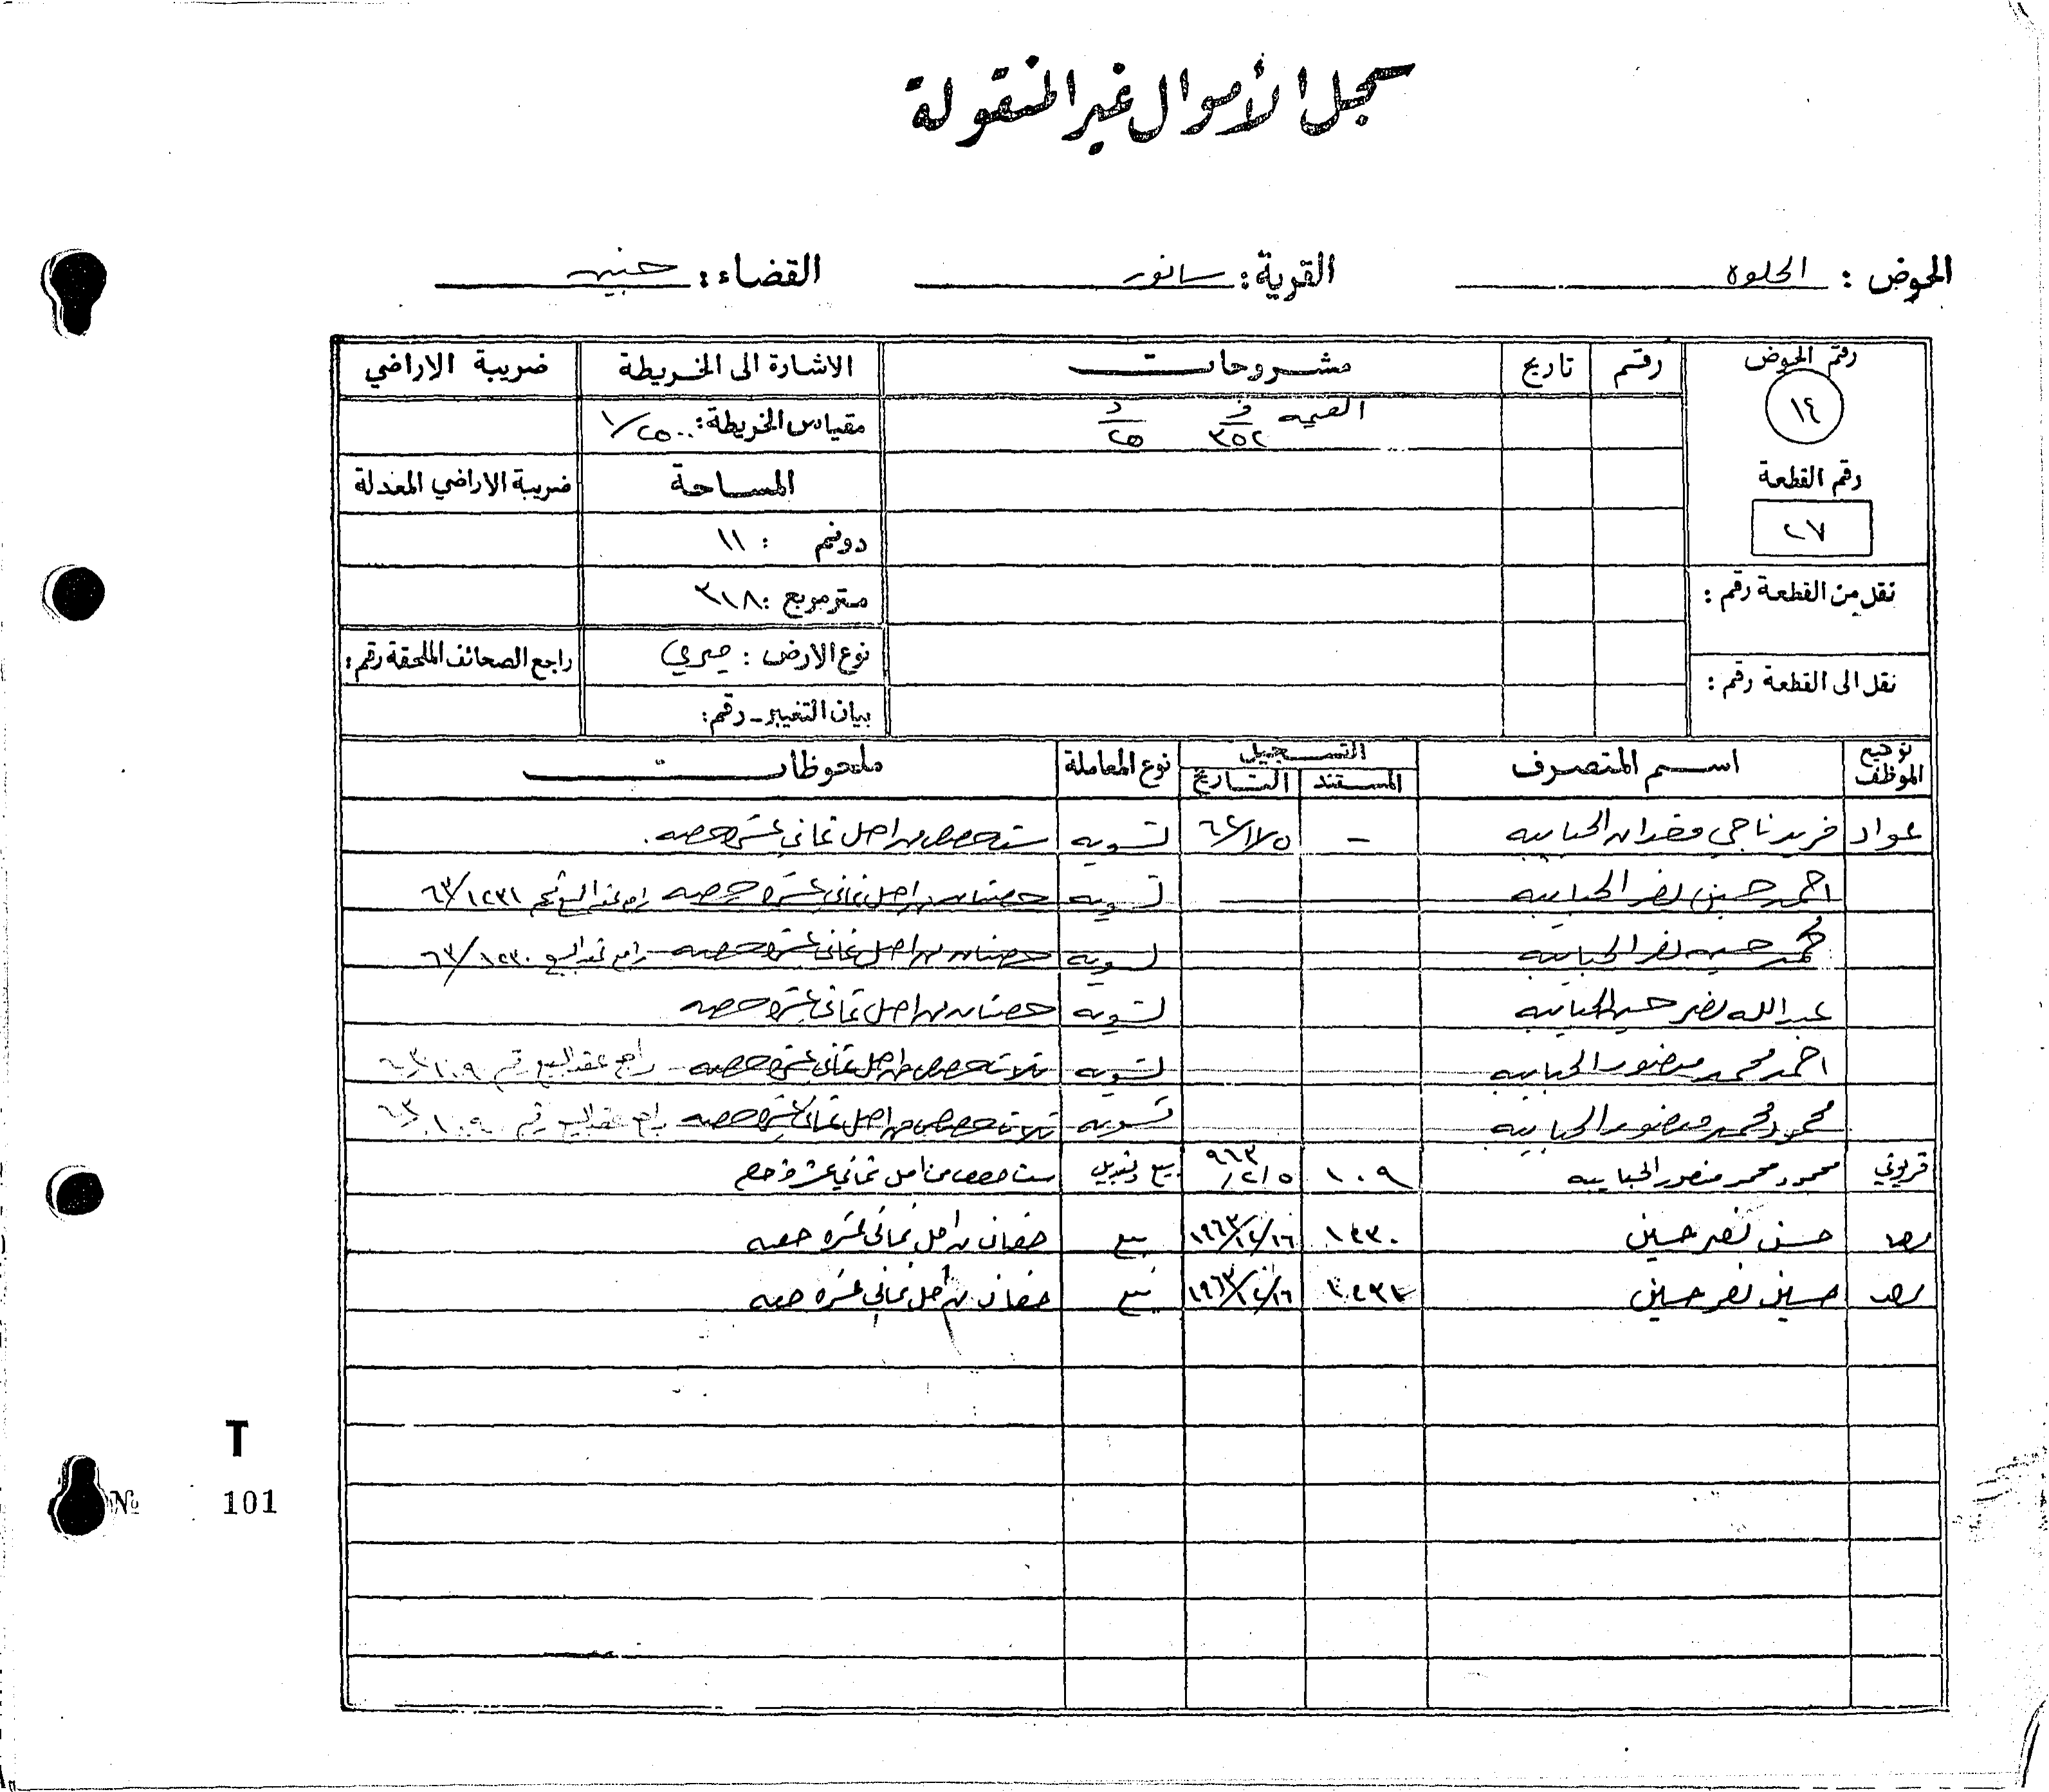 سجل الأموال غير المنقولة
الحوض : الحلوه القرية : سانور القضاء : جنين
رقم الحوض رقم تاريخ مشروحات الاشارة الى الخريطة ضريبة الاراضي
١٤ القيمه ف ٣٥٢ د ٢٥ مقياس الخريطة : ١/٢٥٠٠
رقم القطعة المساحة ضريبة الاراضي المعدلة
٢٧ دونم : ١١
نقل من القطعة رقم : متر مربع : ٣١٨
نوع الارض : ميري راجع الصحائف الملحقة رقم :
نقل الى القطعة رقم : بيان التغيير - رقم :
توقيع الموظف اسم المتصرف التسجيل نوع المعاملة ملحوظات
المستند التاريخ
عواد فريد ناجي الحبايبه - تسويه ست حصص من اصل ثماني عشره حصه .
احمد حسين نصر الحبايبه تسويه حصتان من اصل ثماني عشره حصه راجع عقد البيع رقم ٦٣/١٢٣١
محمد حسين نصر الحبايبه تسويه حصتان من اصل ثماني عشره حصه راجع عقد البيع ٦٣/١٢٣٠
عبدالله نصر حسين الحبايبه تسويه حصتان من اصل ثماني عشره حصه
احمد محمد منصور الحبايبه تسويه ثلاث حصص من اصل ثماني عشره حصه راجع عقد البيع رقم ٦٣/١٠٩
محمود محمد منصور الحبايبه تسويه ثلاث حصص من اصل ثماني عشره حصه راجع عقد البيع رقم ٦٣/١٠٩
محمود محمد منصور الحبايبه ١٠٩ ٩٦٣/٢/٥ بيع ست حصص من اصل ثماني عشرة حصه
حسن نصر حسين ١٢٣٠ ١٩٦٣/١٢/١٦ بيع حصتان من اصل ثماني عشره حصه
حسين نصر حسين ١٢٣١ ١٩٦٣/١٢/١٦ بيع حصتان من اصل ثماني عشره حصه
T
№ 101